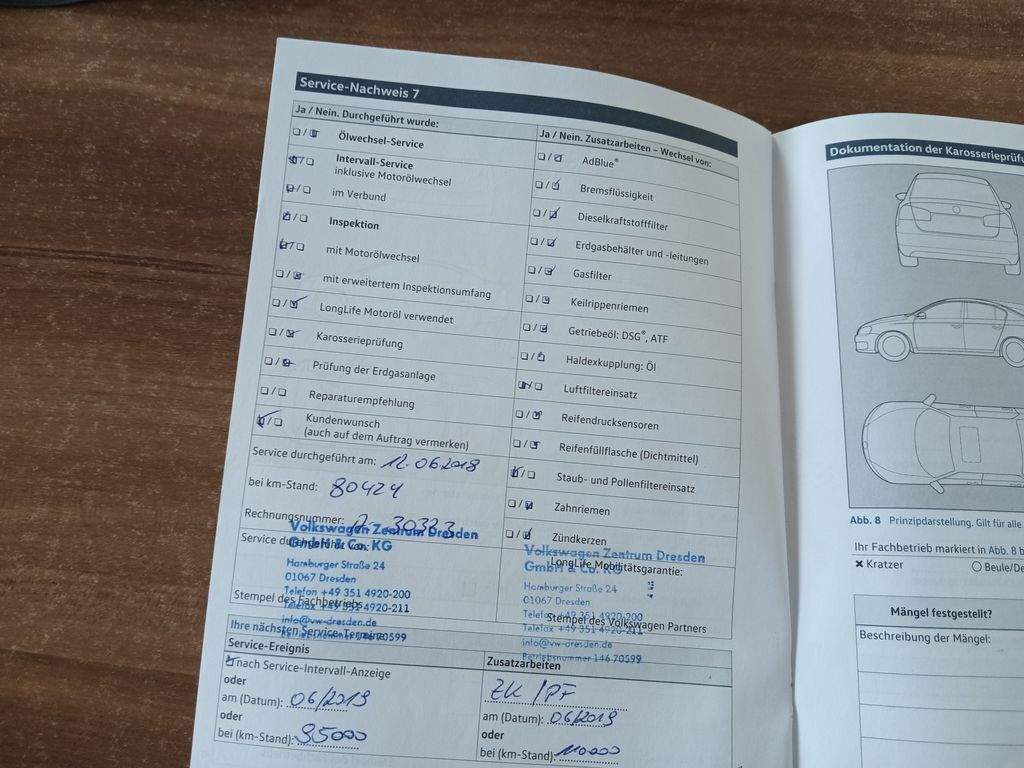 Service-Nachweis 7
Ja / Nein. Durchgeführt wurde:
Ölwechsel-Service
Intervall-Service
inklusive Motorölwechsel
im Verbund
Inspektion
mit Motorölwechsel
mit erweitertem Inspektionsumfang
LongLife Motoröl verwendet
Karosserieprüfung
Prüfung der Erdgasanlage
Reparaturempfehlung
Kundenwunsch
(auch auf dem Auftrag vermerken)
Service durchgeführt am: 12.06.2018
bei km-Stand: 80424
Rechnungsnummer:
Volkswagen Zentrum Dresden
GmbH & Co. KG
Hamburger Straße 24
01067 Dresden
Telefon +49 351 4920-200
Telefax +49 351 4920-211
info@vw-dresden.de
Stempel des Fachbetriebs
Ja / Nein. Zusatzarbeiten – Wechsel von:
AdBlue®
Bremsflüssigkeit
Dieselkraftstofffilter
Erdgasbehälter und -leitungen
Gasfilter
Keilrippenriemen
Getriebeöl: DSG®, ATF
Haldexkupplung: Öl
Luftfiltereinsatz
Reifendrucksensoren
Reifenfüllflasche (Dichtmittel)
Staub- und Pollenfiltereinsatz
Zahnriemen
Zündkerzen
LongLife Mobilitätsgarantie:
Volkswagen Zentrum Dresden
GmbH & Co. KG
Hamburger Straße 24
01067 Dresden
Telefon +49 351 4920-200
Telefax +49 351 4920-211
info@vw-dresden.de
Betriebsnummer 146 70599
Stempel des Volkswagen Partners
Ihre nächsten Service-Termine
Service-Ereignis
nach Service-Intervall-Anzeige
oder
am (Datum): 06/2019
oder
bei (km-Stand): 95000
Zusatzarbeiten
ZK / PF
am (Datum): 06/2019
oder
bei (km-Stand): 110000
Dokumentation der
Abb. 8 Prinzipdarstellung. Gilt für alle
Ihr Fachbetrieb markiert in Abb. 8
Kratzer
Mängel festgestellt?
Beschreibung der Mängel: